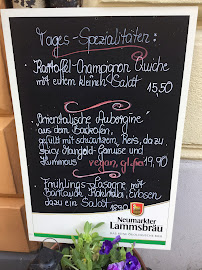 Tages-Spezialitäten:
Kartoffel-Champignon Quiche
mit einem kleinen Salat
15,50
Orientalische Aubergine
aus dem Backofen,
gefüllt mit schwarzem Reis, dazu
Spicy Gemüse und
Hummus vegan, gl.frei 19,90
Frühlings Lasagne mit
Bärlauch, Kohlrabi, Erbsen
dazu ein Salat
Neumarkter
Lammsbräu